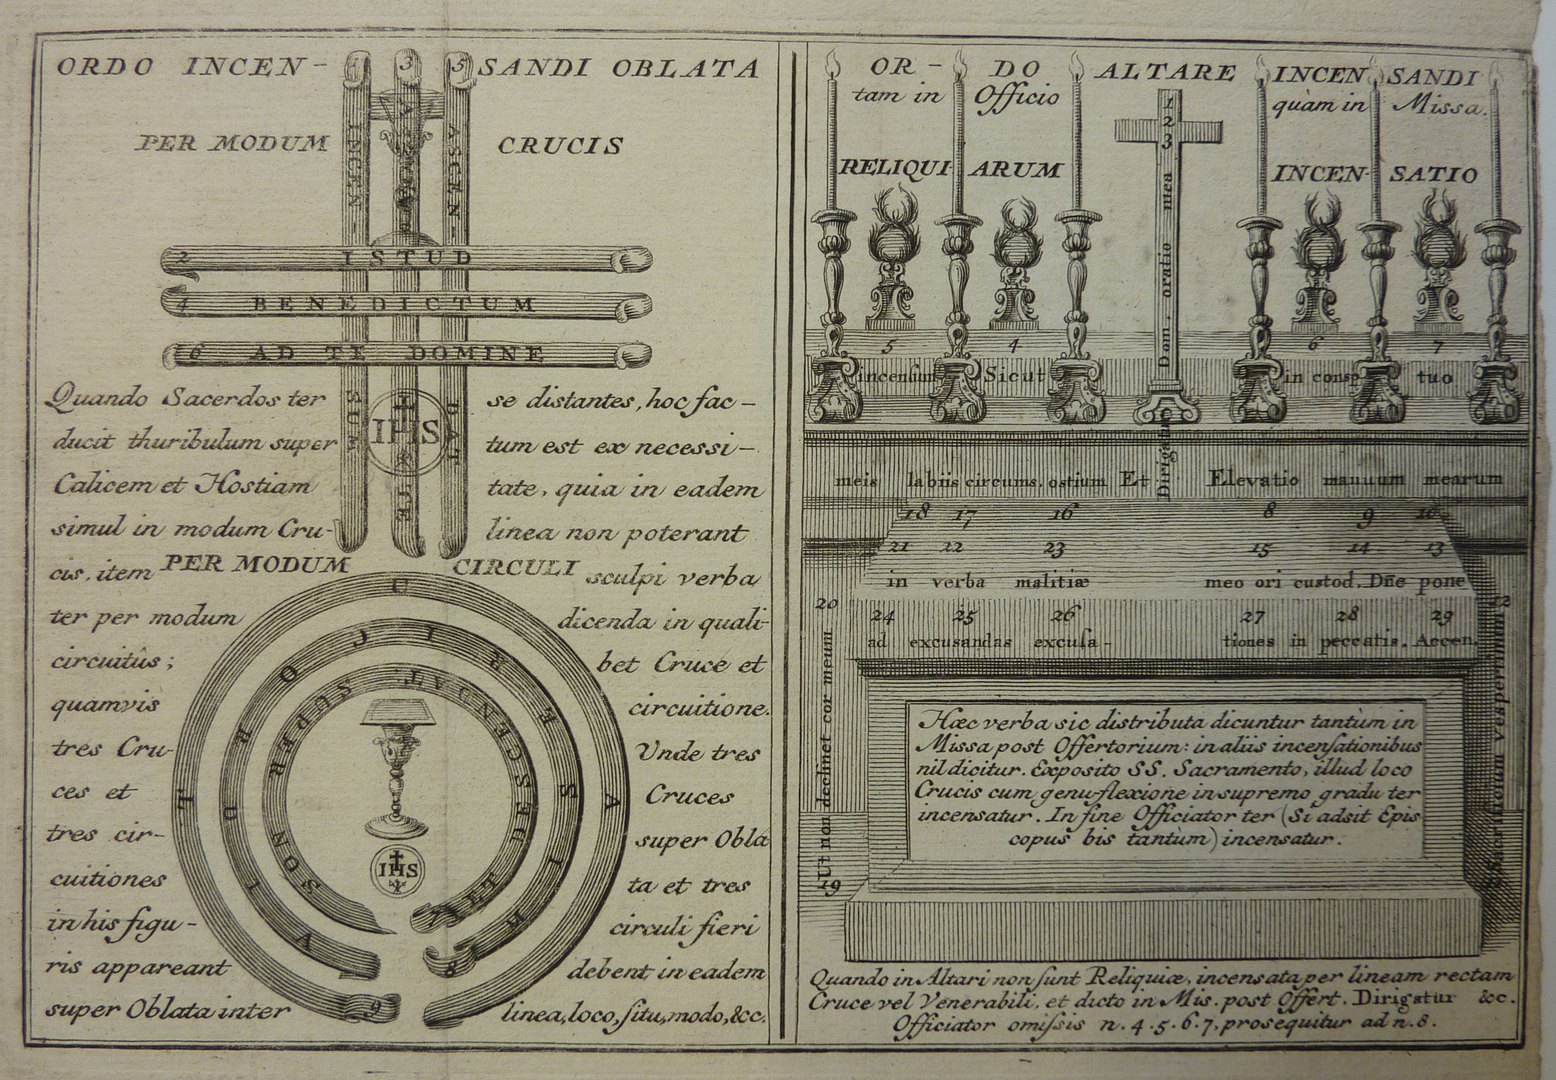 ORDO INCEN- SANDI OBLATA
PER MODUM CRUCIS
1 3 5
INCEN- SUM
ASCENDAT
ASCEN- DAT
2 ISTUD
4 BENEDICTUM
6 AD TE DOMINE
IHS
Quando Sacerdos ter
ducit thuribulum super
Calicem et Hostiam
simul in modum Cru-
cis, item
ter per modum
circuitûs;
quamvis
tres Cru-
ces et
tres cir-
cuitiones
in his figu-
ris appareant
super Oblata inter
se distantes, hoc fac-
tum est ex necessi-
tate, quia in eadem
linea non poterant
sculpi verba
dicenda in quali-
bet Cruce et
circuitione.
Unde tres
Cruces
super Obla
ta et tres
circuli fieri
debent in eadem
linea, loco, situ, modo, &c.
PER MODUM CIRCULI
SUPER NOS
DESCENDAT
8
9
IHS
OR- DO ALTARE INCEN SANDI
tam in Officio quàm in Missa.
RELIQUI ARUM INCEN- SATIO
1
2
3
Dirigatur Dom. oratio mea
5 4 6 7
incensum Sicut in consp tuo
meis labiis circums. ostium Et Elevatio manuum mearum
18 17 16 8 9 10
21 22 23 15 14 13
in verba malitiæ meo ori custod. Dñe pone
20 12
24 25 26 27 28 29
ad excusandas excusa- tiones in peccatis. Accen.
Ut non declinet cor meum
19
Sacrificium vespertinum
Hæc verba sic distributa dicuntur tantùm in
Missa post Offertorium: in aliis incensationibus
nil dicitur. Exposito SS. Sacramento, illud loco
Crucis cum genu-flexione in supremo gradu ter
incensatur. In fine Officiator ter (Si adsit Epis
copus bis tantùm) incensatur.
Quando in Altari non sunt Reliquiæ, incensata per lineam rectam
Cruce vel Venerabili, et dicto in Mis. post Offert. Dirigatur &c.
Officiator omissis n. 4. 5. 6. 7, prosequitur ad n. 8.